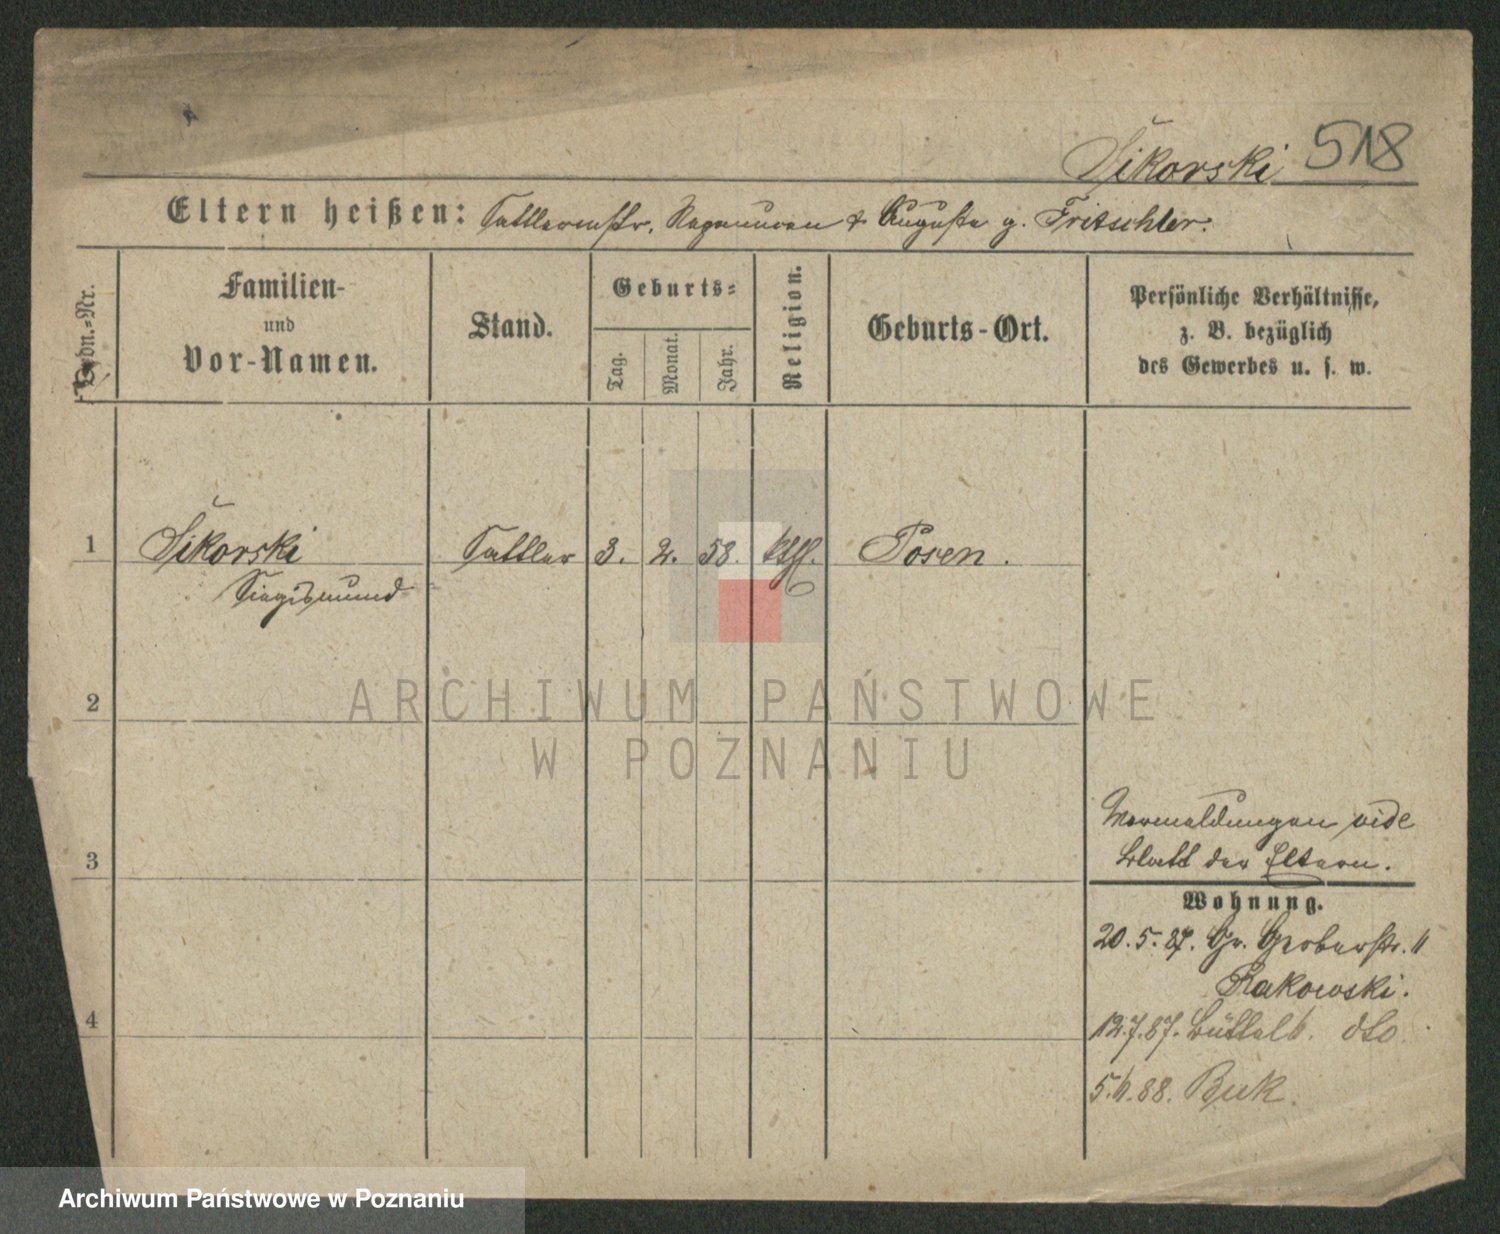 Šikorski 518
Eltern heißen: Sattlermstr. Nepomucen & Auguste g. Fritschler.
Lfdn.-Nr.
Familien-
und
Vor-Namen.
Stand.
Geburts-
Tag.
Monat.
Jahr.
Religion.
Geburts-Ort.
Persönliche Verhältnisse,
z. B. bezüglich
des Gewerbes u. s. w.
1 Šikorski Sattler 3. 2. 58. kth. Posen.
Siegismund
2
3
4
Vermeldungen vide
Blatt der Eltern.
Wohnung.
20.5.87. Gr. Gerberstr. 11
Rakowski.
12.7.87. Büttelb. dto.
5.11.88. Buk.
ARCHIWUM PAŃSTWOWE
W POZNANIU
Archiwum Państwowe w Poznaniu